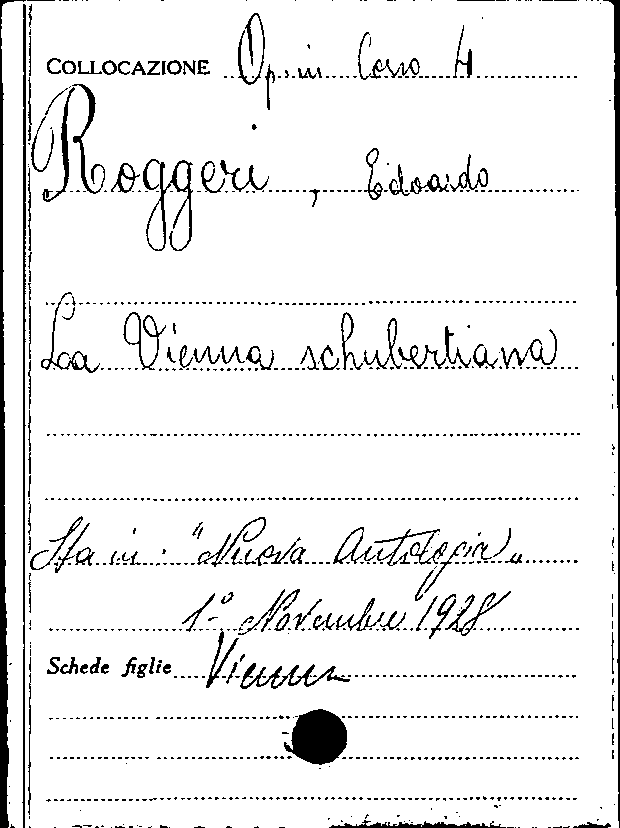 COLLOCAZIONE Op. in Corso 4
Roggeri, Edoardo
La Vienna schubertiana
Sta in: "Nuova Antologia„
1º Novembre 1928
Schede figlie Vienna